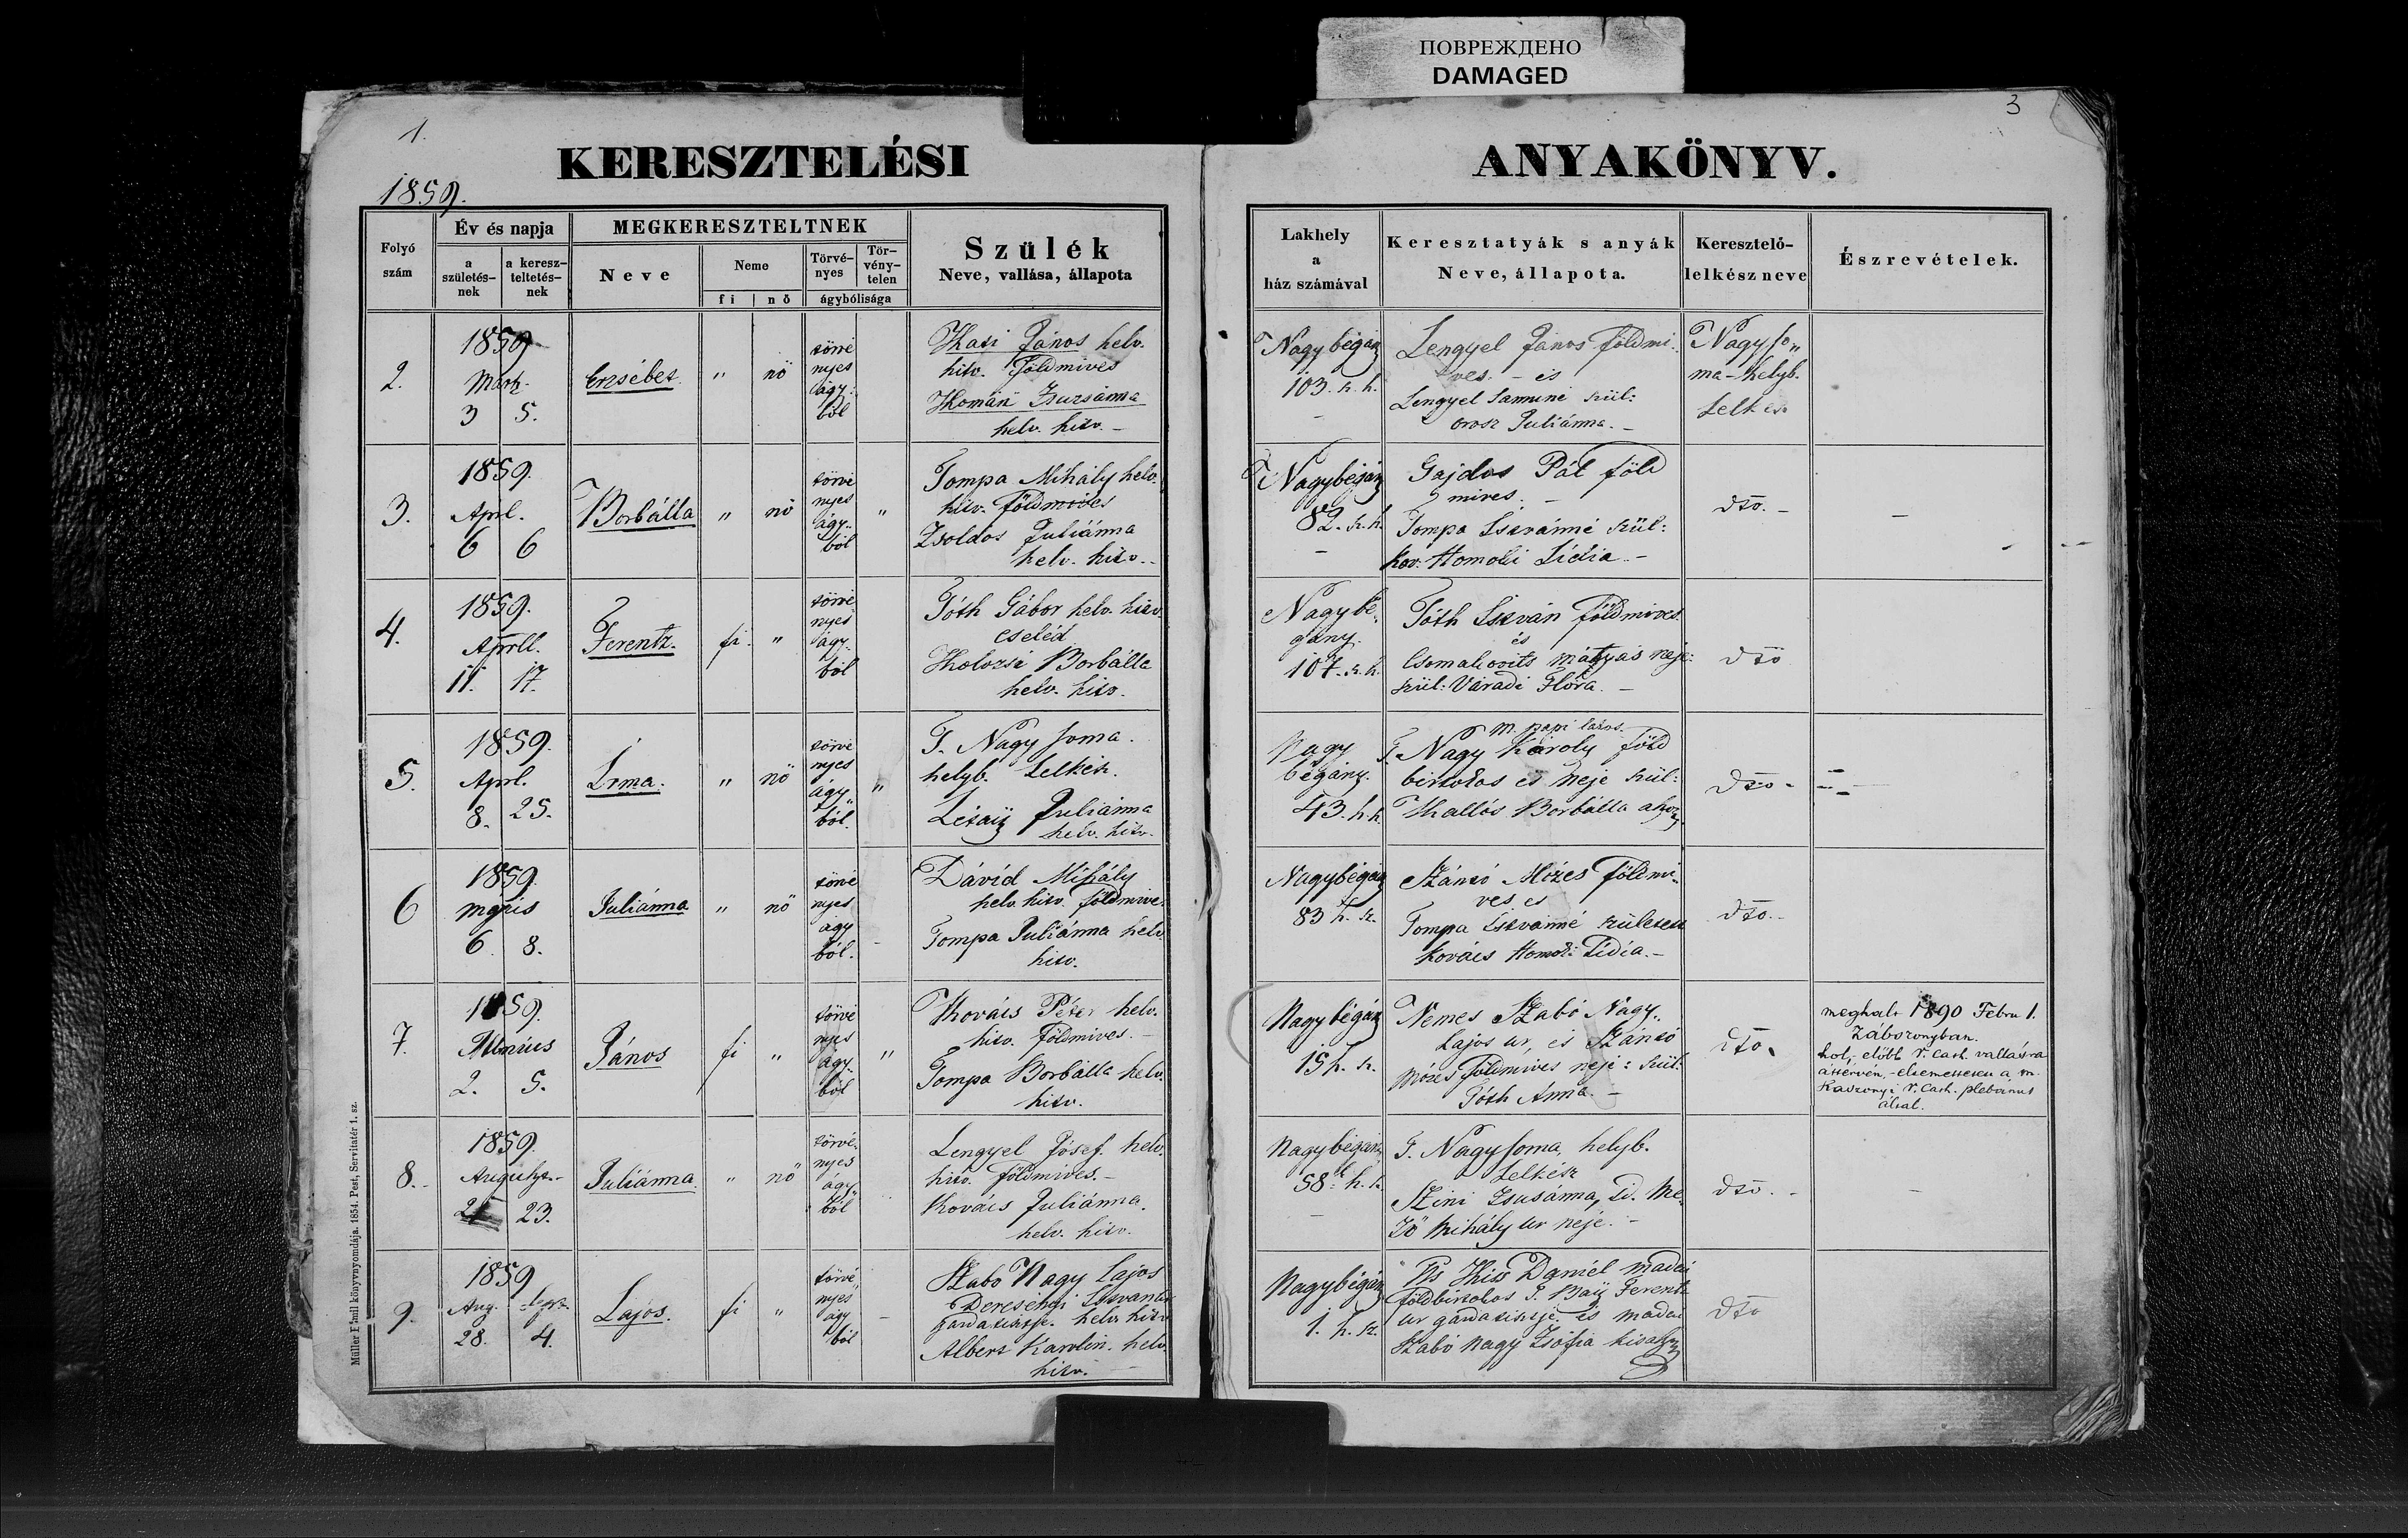 ПОВРЕЖДЕНО
DAMAGED
1.
3
KERESZTELÉSI
ANYAKÖNYV.
1859.
Folyó szám
Év és napja
a születés-nek
a keresz-teltetés-nek
MEGKERESZTELTNEK
Neve
Neme
fi
nő
Törvé-nyes
Tör-vény-telen
ágybólisága
Szülék
Neve, vallása, állapota
Lakhely
a
ház számával
Keresztatyák s anyák
Neve, állapota.
Keresztelő-
lelkész neve
Észrevételek.
2.
1859
Mart.
3 5.
Erzsébet.
"
nő
törvé
nyes
ágy:
ból
János helv.
hitv. Földmives
Homán Zsuzsánna
helv. hitv. –
Nagybégány
103. h.
Lengyel János földmi-
ves. – és
Lengyel szül:
orosz Juliánna. –
Nagy So„
ma – helyb.
Lelkész
3.
1859.
Aprl.
6 6
Borbálla
"
nő
törvé
nyes
ágy..
ból
"
Tompa Mihály helv.
hitv. földmives
Zsoldos Juliánna
helv. hitv. –
Nagybégány
82. sz. h.
–
Gajdos Pál föld
mives. –
Tompa Istvánné szül:
Kov. Homoki Lídia –
dto. –
–
4.
1859.
Aprll.
11. 17.
Ferentz.
fi.
"
törvé
nyes
ágy..
ból
Tóth Gábor helv. hitv.
cseléd
Borbálla
helv. hitv.
Nagybé-
gány.
107. sz. h.
Tóth István földmives.
és
Mátyás neje:
szül: Váradi Flóra. –
dto
5.
1859.
Aprl.
8. 25.
Irma.
"
nő
törvé
nyes
ágy"
ból.
"
T. Nagy Soma.
helyb. Lelkész.
Juliánna
helv. hitv.
Nagy
bégány.
43. h.
M. papi
T. Nagy Károly föld
birtokos és neje szül:
Borbálla
dto –
6
1859.
május
6. 8.
Juliánna
"
nő
törvé
nyes
ágy
ból.
–
Dávid Mihály
helv. hitv. földmives
Tompa Juliánna helv.
hitv.
Nagybégány
83 h. sz.
Szántó Mózes földmi-
ves és
Tompa Istvánné született
Kovács Homoki Lidia. –
dto. –
7.
1859.
Junius
2. 5.
János
fi
"
törvé
nyes
ágy..
ból
"
Kovács Péter helv.
hitv. földmives. –
Tompa Borbálla helv.
hitv.
Nagybégány
15 h. sz.
Nemes Szabó Nagy
Lajos ur, és Szántó
Mózes földmives neje: szül:
Tóth Anna. –
dto.
meghalt 1890 Febru 1.
Zábszonyban.
hol, előbb r. Cath. vallásra
áttérvén, – eltemettetett a m.
Kaszonyi r. Cath. plebánus
által.
8. –
1859.
23.
Juliánna
"
nő
törvé-
nyes
ágy"
ból
Lengyel Jósef. helv.
hitv. földmives. –
Kovács Juliánna.
helv. hitv.
Nagybégány
58. h.
–
T. Nagy Soma, helyb.
Lelkész
Szini Zsusánna, Me-
ző Mihály ur neje. –
dto. –
–
9.
1859
Aug. Sept.
28. 4.
Lajos.
fi
"
törvé,
nyes
ágy
ból
–
Szabo Nagy Lajos
Deresényi
gazdatisztje. helv. hitv.
Albert Karolin. helv.
hitv. –
Nagybégány
1. h. sz.
Kiss Dániel madai
földbirtokos T. Ferentz
ur gazdatisztje és madai
Szabó Nagy Zsófia
dto
Müller Emil könyvnyomdája. 1854. Pest, Servitatér 1. sz.